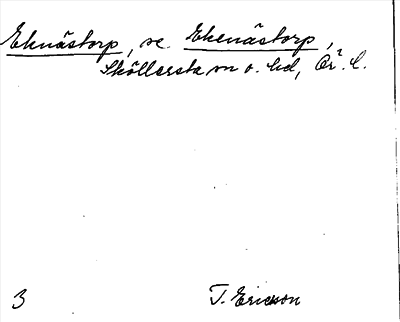 Eknästorp, se Ekenästorp,
Sköllersta sn o. hd, Ör. l.
3 T. Ericson